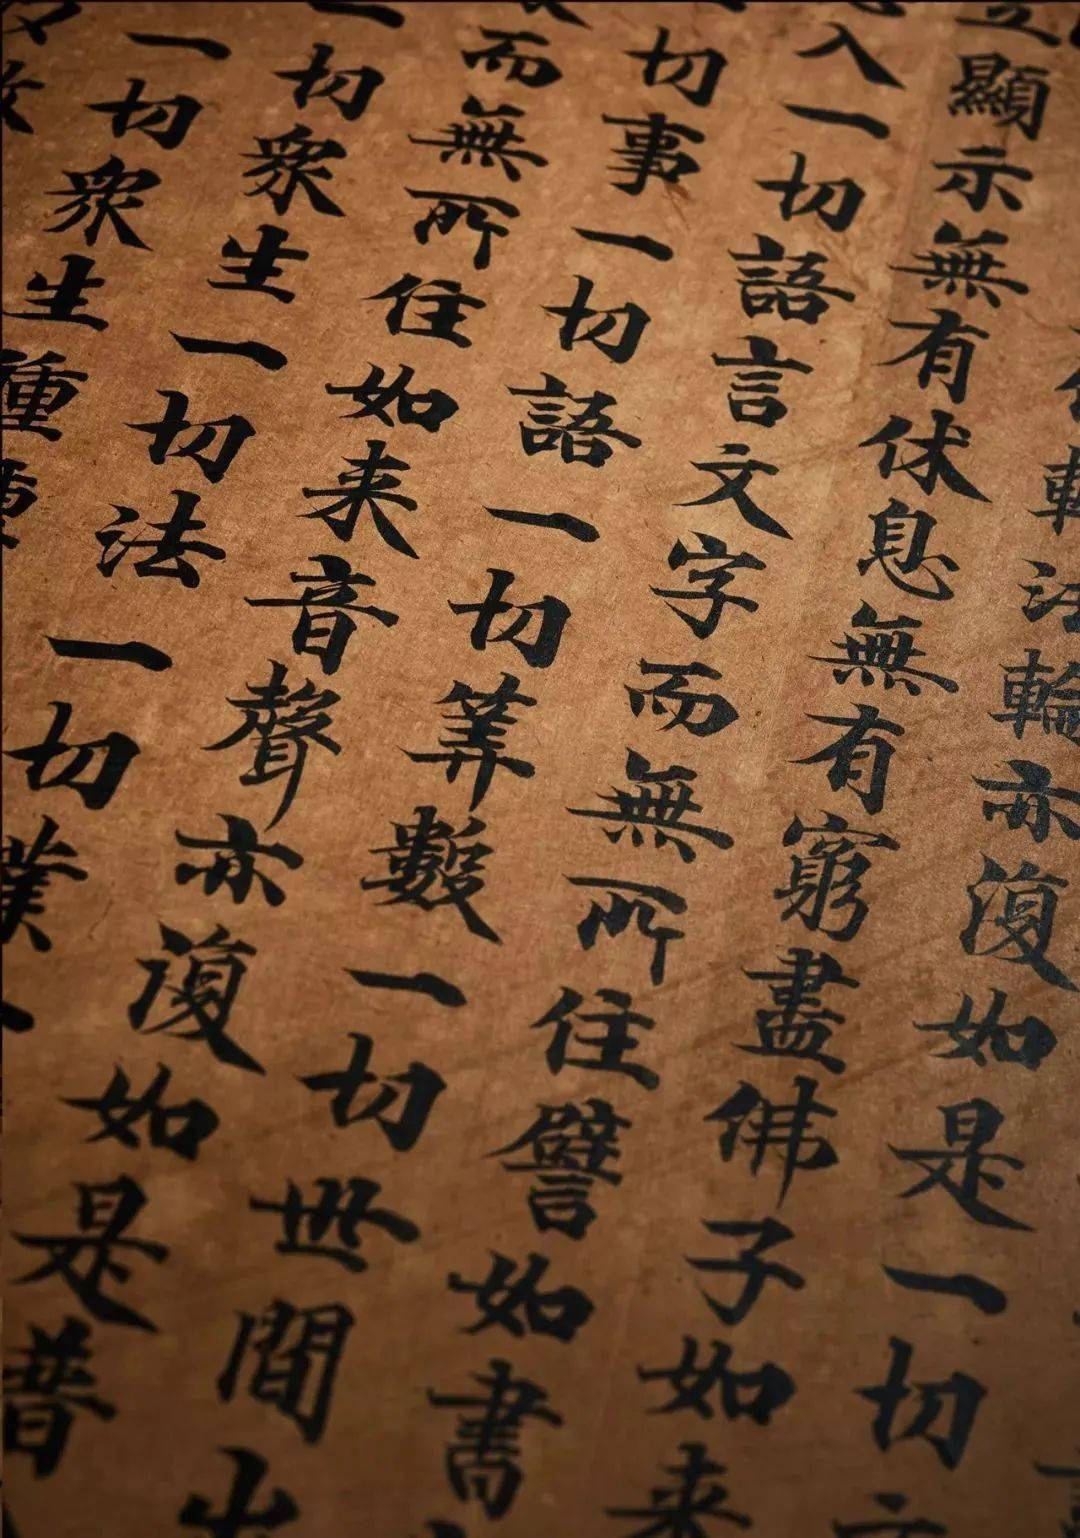 轉法輪亦復如是一切
立顯示無有休息無有窮盡佛子如来
入一切語言文字而無所住譬如書
一切事一切語一切筭數一切世間出
而無所住如来音聲亦復如是普
一切衆生一切法一切業
一切衆生種